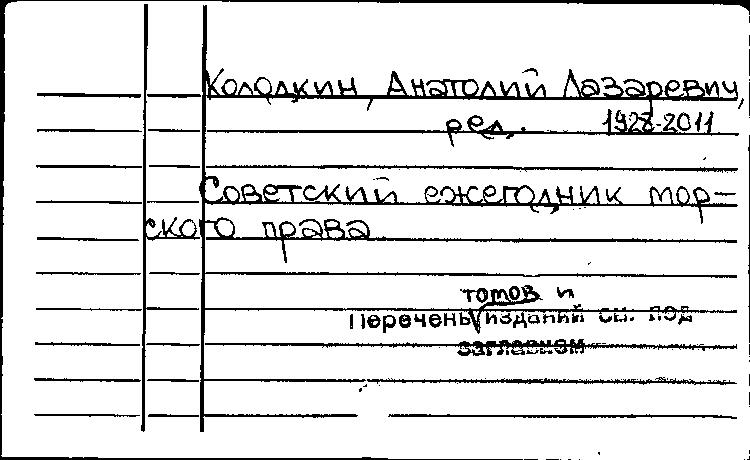 Колодкин, Анатолий Лазаревич,
ред. 1928-2011
Советский ежегодник мор-
ского права
томов и
Перечень изданий см. под
заглавием